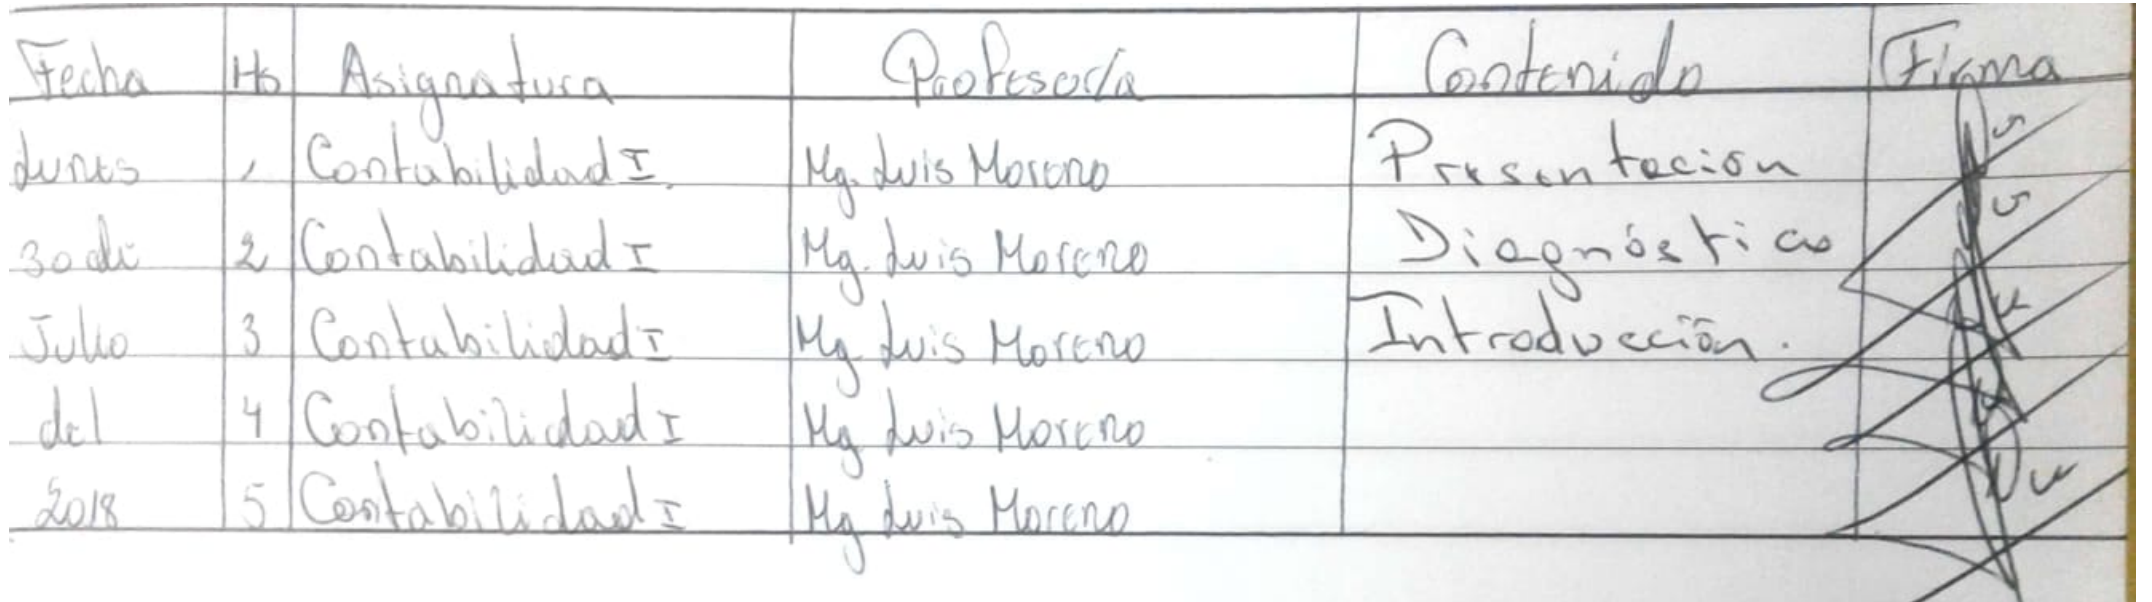 Fecha Hs Asignatura Profesor/a Contenido Firma
Lunes 1 Contabilidad I. Mg. Luis Moreno Presentación
30 de 2 Contabilidad I Mg. Luis Moreno Diagnóstico
Julio 3 Contabilidad I Mg Luis Moreno Introducción.
del 4 Contabilidad I Mg Luis Moreno
2018 5 Contabilidad I Mg Luis Moreno